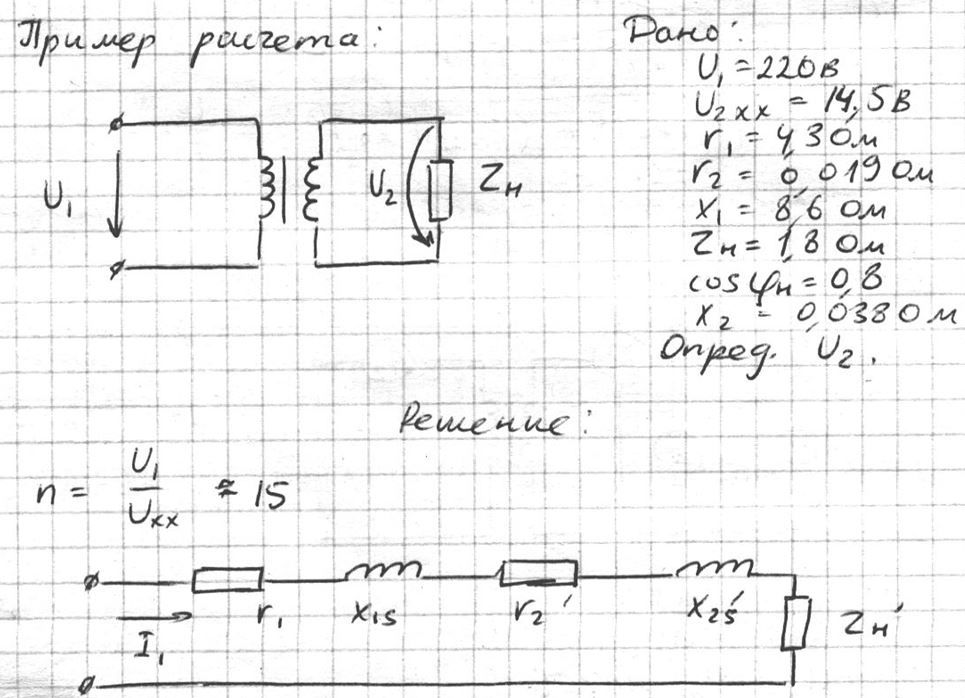 Пример расчета:
Дано:
U₁ = 220В
U₂хх = 14,5В
r₁ = 4,3 Ом
r₂ = 0,019 Ом
x₁ = 8,6 Ом
Zн = 1,8 Ом
cos φн = 0,8
x₂ = 0,038 Ом
Опред. U₂.
U₁
U₂
Zн
Решение:
n = U₁ / Uхх ≈ 15
I₁
r₁
x₁s
r₂'
x₂s'
Zн'